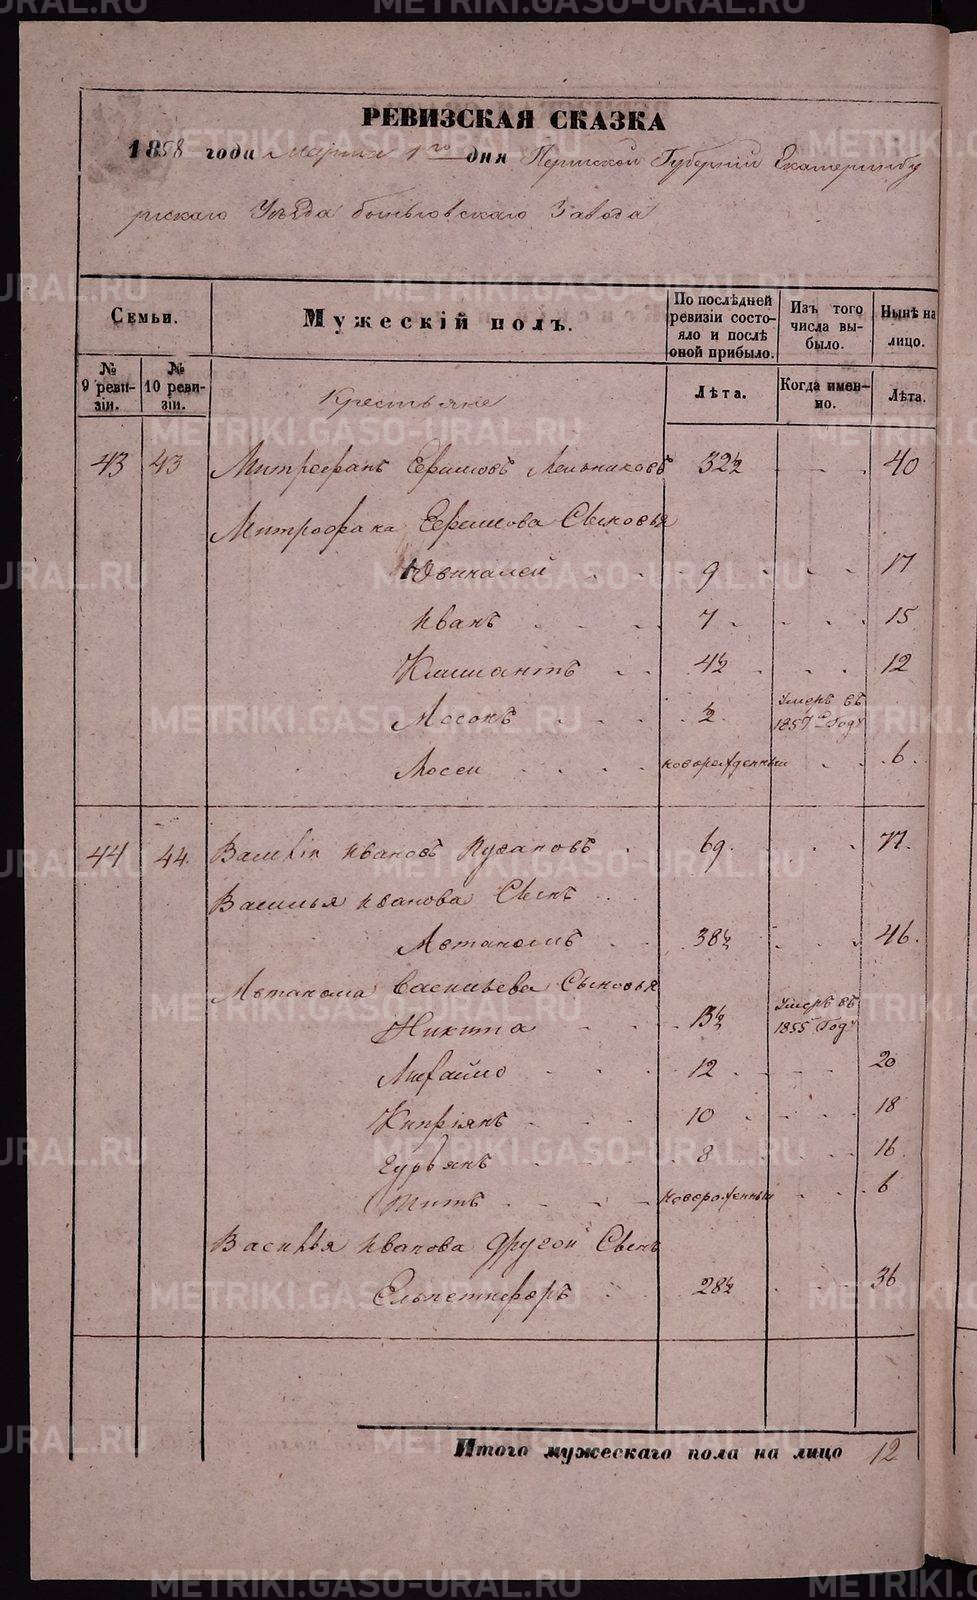 РЕВИЗСКАЯ СКАЗКА
1858 года марта 1го дня Пермской Губернии Екатеринбу
ргскаго Уѣзда Заводa
Семьи.
Мужескій полъ.
По послѣдней ревизіи состояло и послѣ оной прибыло.
Изъ того числа выбыло.
Нынѣ на лицо.
№ 9 ревизіи.
№ 10 ревизіи.
Лѣта.
Когда именно.
Лѣта.
Крестьяне
43 43 Митрофанъ Ефимовъ Мельниковъ 32½ 40
Митрофана Ефимова Сыновья
Ювиналей 9 17
Иванъ 7 15
Климантъ 4½ 12
½ Умеръ въ 1857 Году
Мосеи новорожденный 6
44 44 Василіи Ивановъ 69 77
Василья Иванова Сынъ
Автаномъ 38½ 46
Автанома Васильева Сыновья
Никита 13½ Умеръ въ 1855 Году
Михайло 12 20
Кипріянъ 10 18
Гурьянъ 8 16
Титъ Новорожденный 6
Василья Иванова другой Сынъ
Ельпетифоръ 28½ 36
Итого мужескаго пола на лицо 12
METRIKI.GASO-URAL.RU